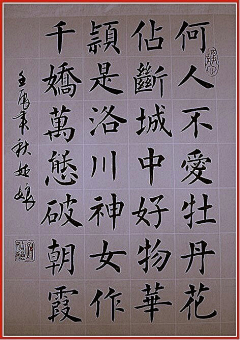 何人不愛牡丹花
佔斷城中好物華
頴是洛川神女作
千嬌萬態破朝霞
壬辰季秋